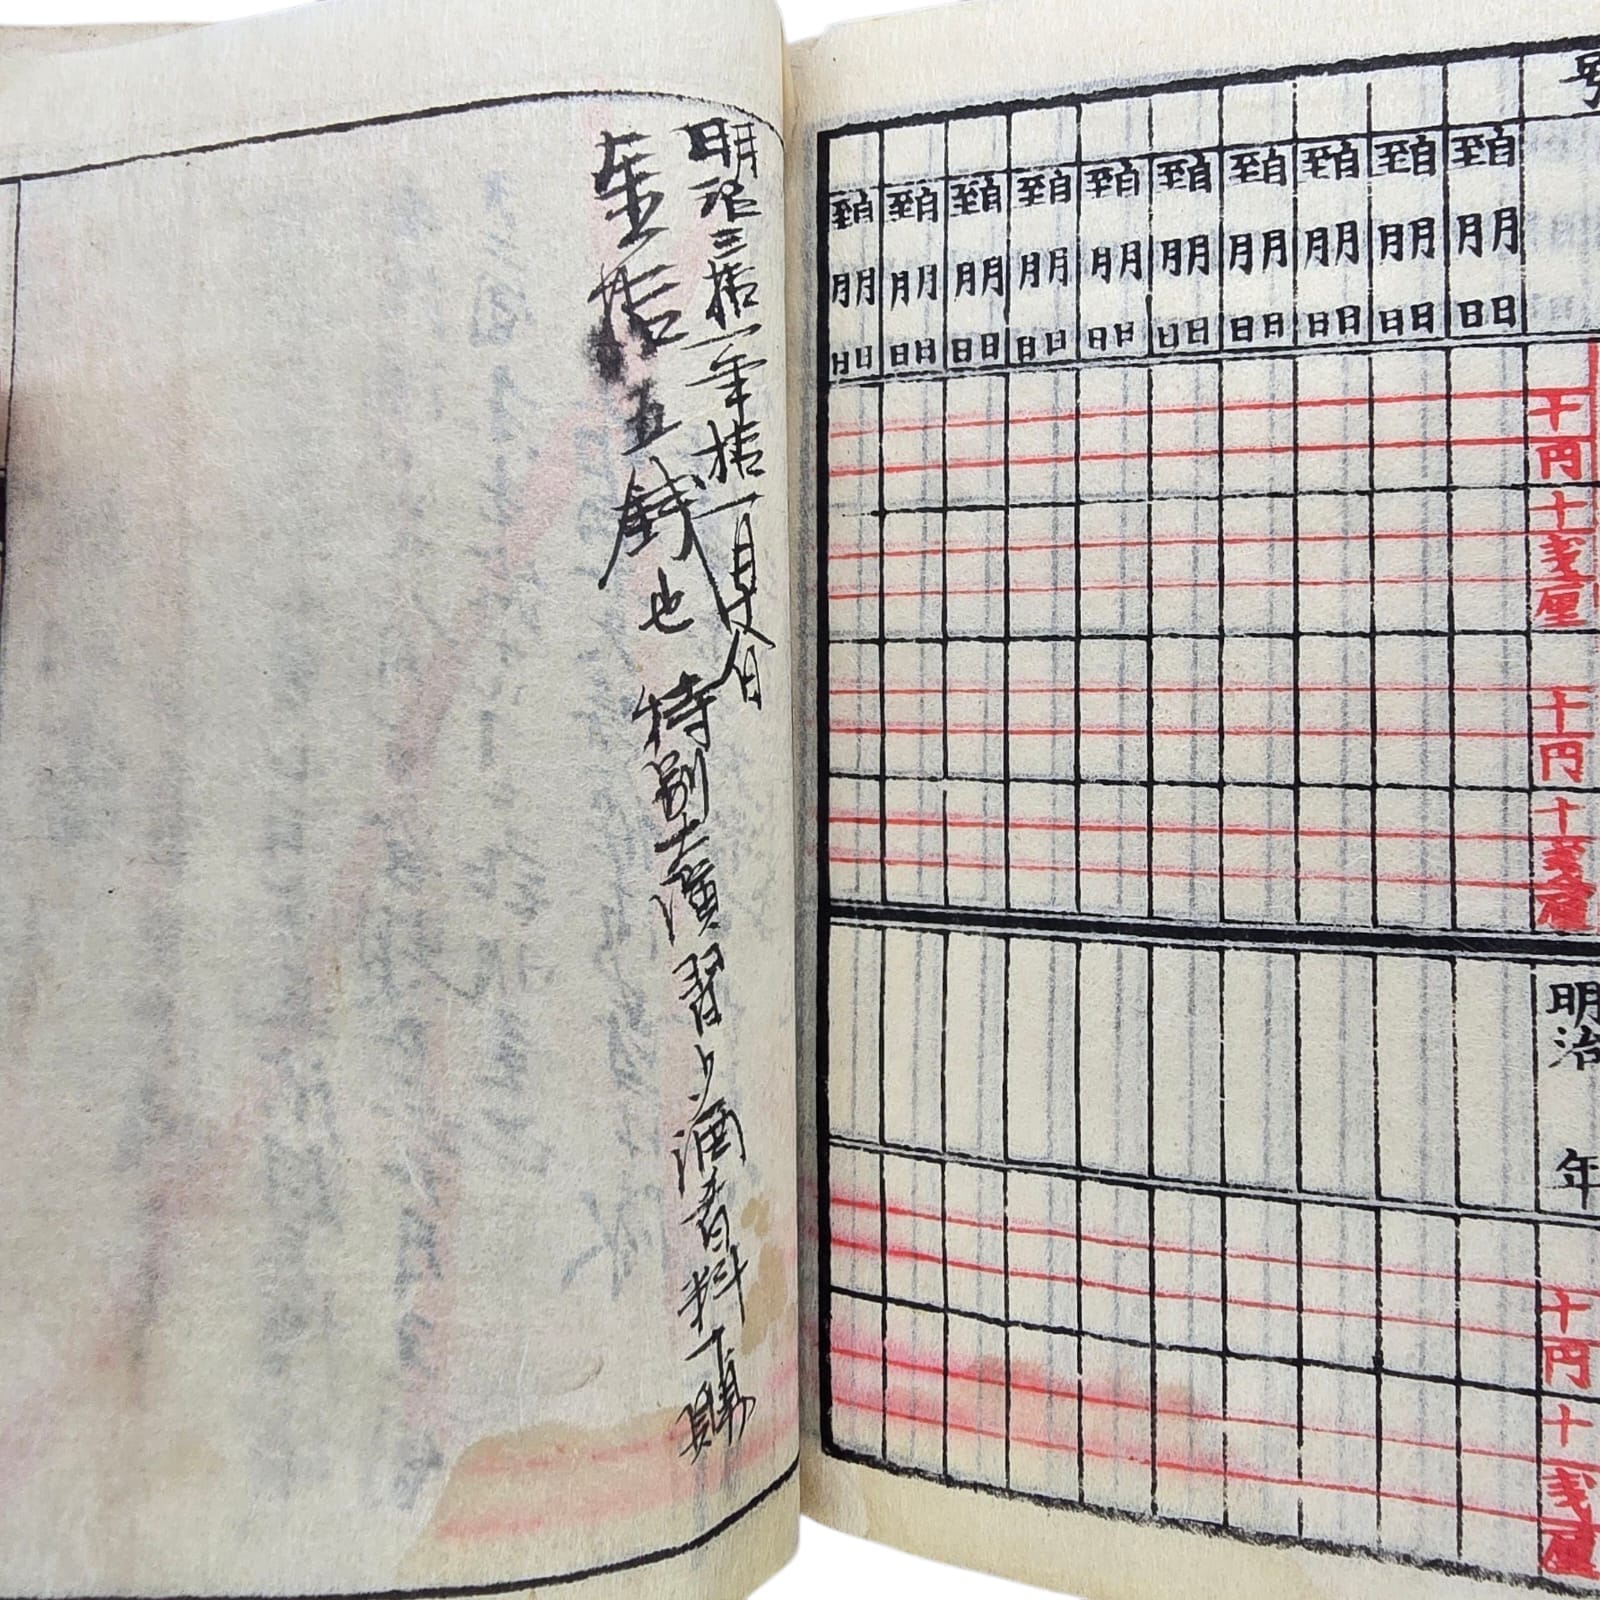 号
自 至 月 月 日 日
自 至 月 月 日 日
自 至 月 月 日 日
自 至 月 月 日 日
自 至 月 月 日 日
自 至 月 月 日 日
自 至 月 月 日 日
自 至 月 月 日 日
自 至 月 月 日 日
自 至 月 月 日 日
十円
十銭厘
十円
十銭厘
明治 年
十円
十銭厘
明治三拾一年拾一月
金拾五銭也 特別大演習ノ 酒肴料下賜